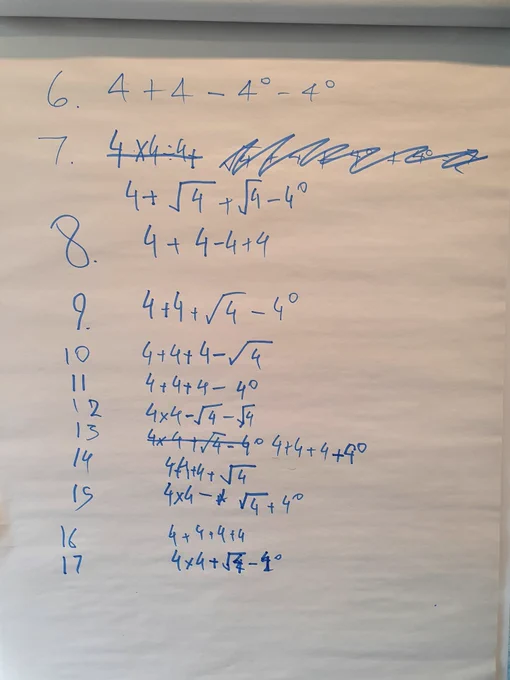 6. 4 + 4 - 4⁰ - 4⁰
7. 4 x 4 ÷ 4 +
4 + √4 + √4 - 4⁰
8. 4 + 4 - 4 + 4
9. 4 + 4 + √4 - 4⁰
10 4 + 4 + 4 - √4
11 4 + 4 + 4 - 4⁰
12 4 x 4 - √4 - √4
13 4 x 4 + √4 - 4⁰ 4 + 4 + 4 + 4⁰
14 4 + 4 + 4 + √4
15 4 x 4 - √4 + 4⁰
16 4 + 4 + 4 + 4
17 4 x 4 + √4 - 4⁰